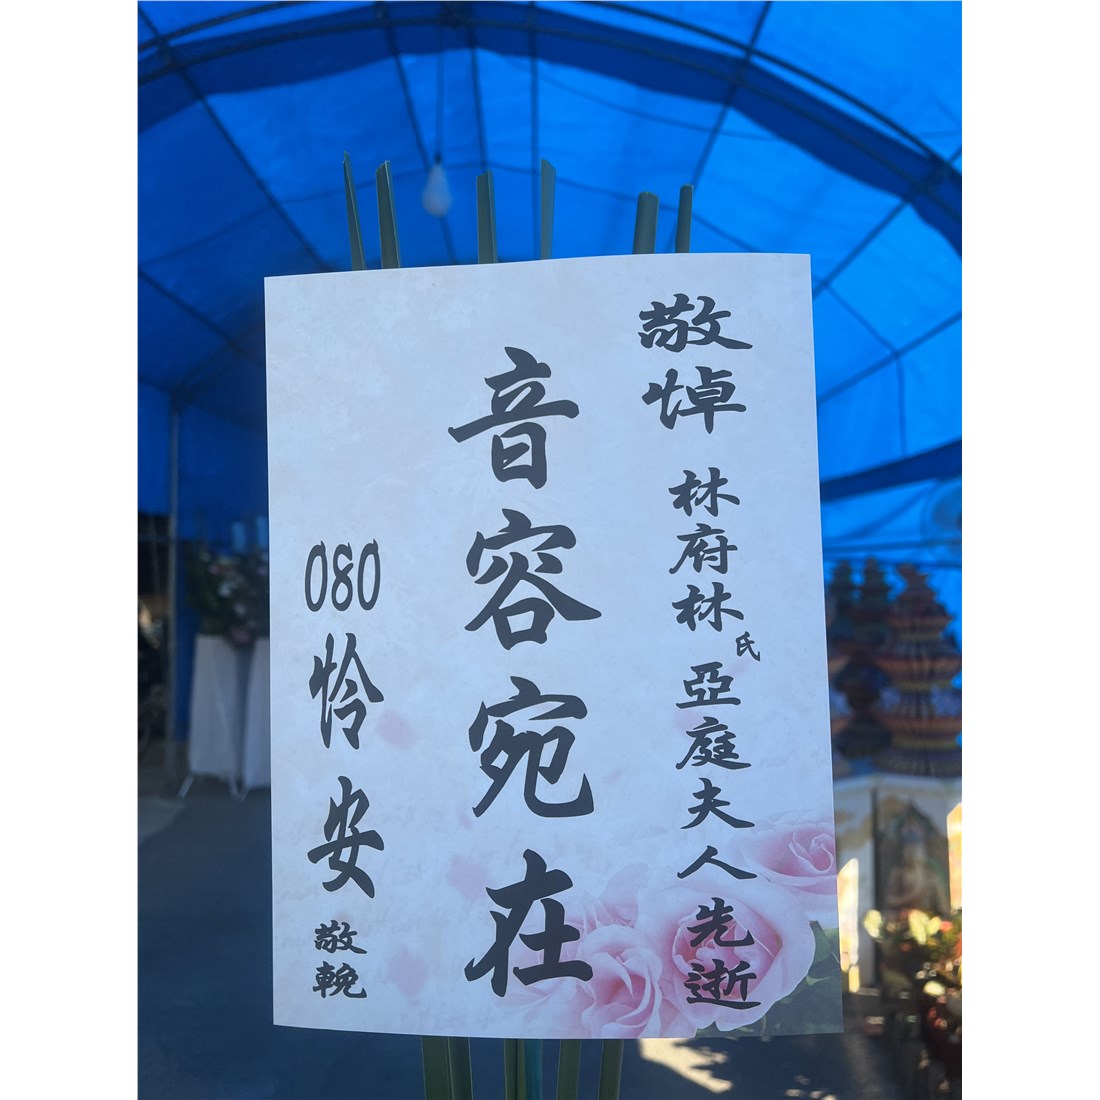 敬悼 林府林氏亞庭夫人先逝
音容宛在
080怜安敬輓